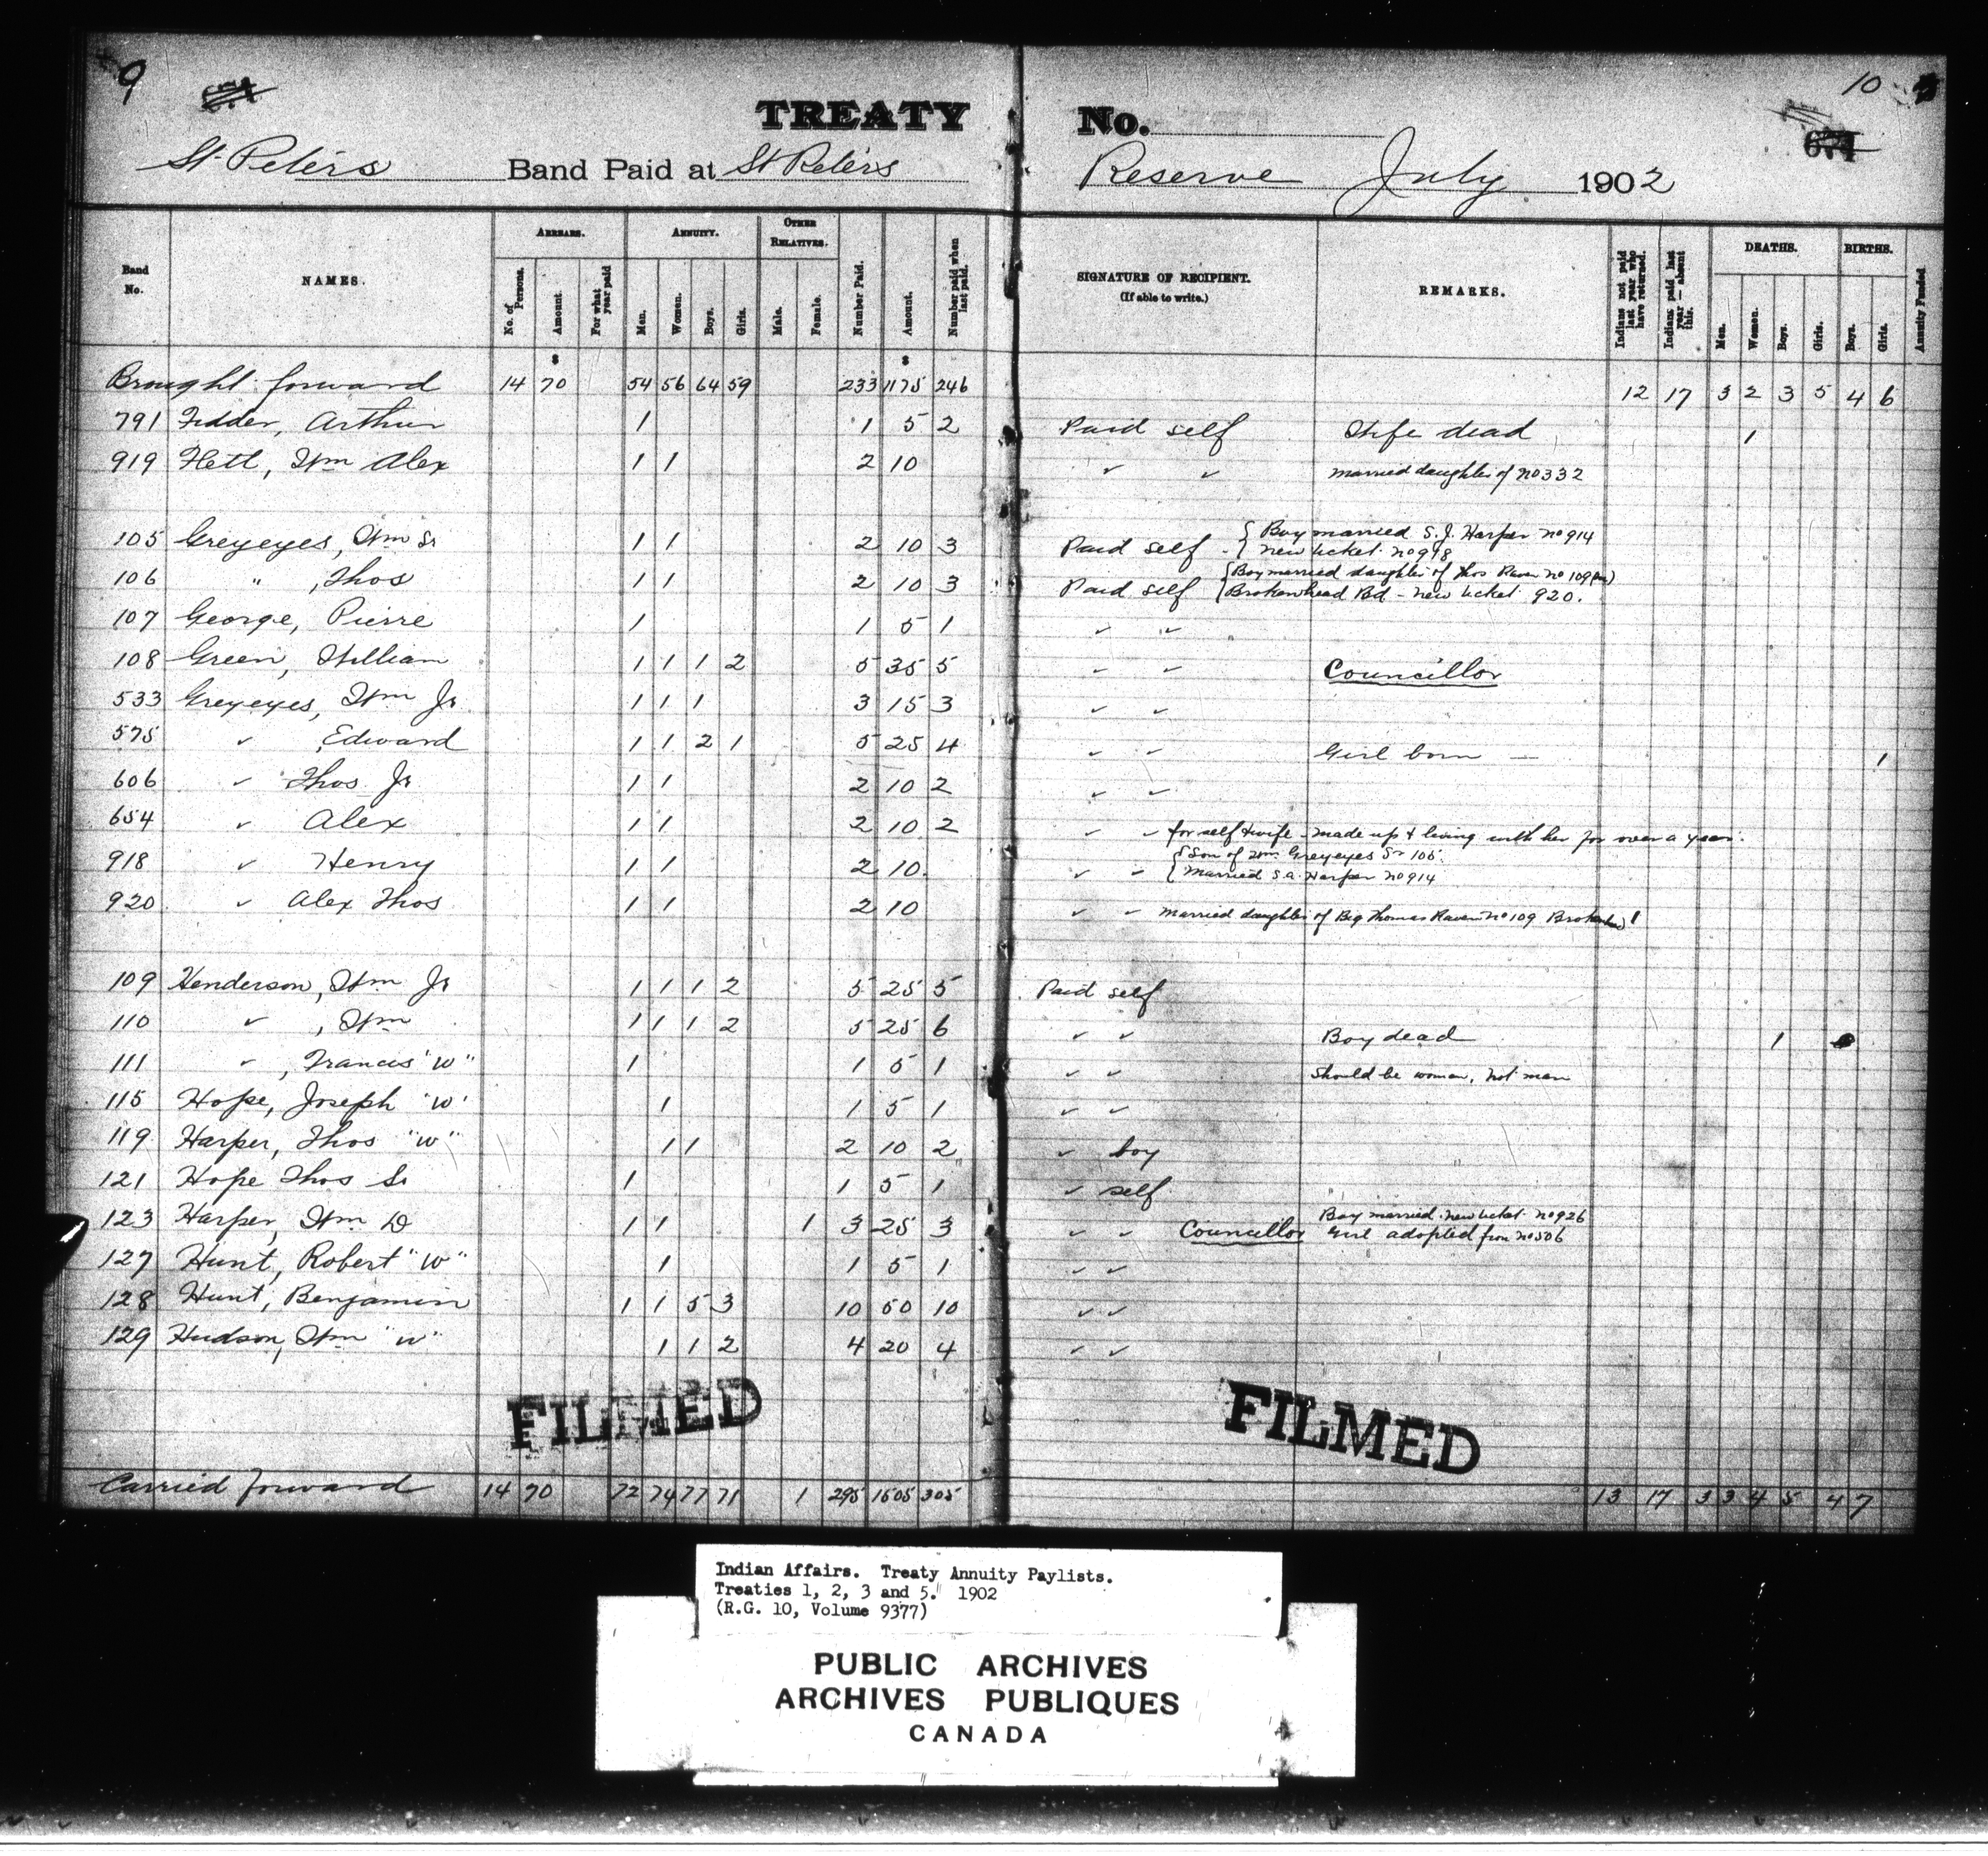 9
10
TREATY No.
St. Peters Band Paid at St Peters Reserve July 1902
Band No. NAMES. ARREARS. No. of Persons. Amount. For what year paid ANNUITY. Men. Women. Boys. Girls. OTHER RELATIVES. Male. Female. Number Paid. Amount. Number paid when last paid. SIGNATURE OF RECIPIENT. (If able to write.) REMARKS. Indians not paid last year who have returned. Indians paid last year — absent this. DEATHS. Men. Women. Boys. Girls. BIRTHS. Boys. Girls. Annuity Funded
Brought forward 14 70 54 56 64 59 233 1175 246 12 17 3 2 3 5 4 6
791 Fidder, Arthur 1 1 5 2 Paid self Wife dead 1
919 Flett, Wm Alex 1 1 2 10 ✓ ✓ Married daughter of No 332
105 Greyeyes, Wm Sr 1 1 2 10 3 Paid self { Boy married S. J. Harper No 914
{ New ticket No 918
106 " , Thos 1 1 2 10 3 Paid self { Boy married daughter of Thos Raven No 109
{ Brokenhead Bd - New ticket 920.
107 George, Pierre 1 1 5 1 ✓ ✓
108 Green, William 1 1 1 2 5 35 5 ✓ ✓ Councillor
533 Greyeyes, Wm Jr 1 1 1 3 15 3 ✓ ✓
575 ✓ , Edward 1 1 2 1 5 25 4 ✓ ✓ Girl born — 1
606 ✓ Thos Jr 1 1 2 10 2 ✓ ✓
654 ✓ Alex 1 1 2 10 2 ✓ ✓ for self & wife - made up & living with her for over a year.
918 ✓ Henry 1 1 2 10. ✓ ✓ { Son of Wm Greyeyes Sr 105.
{ Married S. A. Harper No 914
920 ✓ Alex Thos 1 1 2 10 ✓ ✓ Married daughter of Big Thomas Raven No 109 1
109 Henderson, Wm Jr 1 1 1 2 5 25 5 Paid self
110 ✓ , Wm 1 1 1 2 5 25 6 ✓ ✓ Boy dead 1
111 ✓ , Francis "W" 1 1 5 1 ✓ ✓ Should be woman, not man
115 Hope, Joseph "W" 1 1 5 1 ✓ ✓
119 Harper, Thos "W" 1 1 2 10 2 ✓ boy
121 Hope Thos Sr 1 1 5 1 ✓ self
123 Harper, Wm D 1 1 1 3 25 3 ✓ ✓ Councillor Boy married. New ticket No 926
Girl adopted from No 506
127 Hunt, Robert "W" 1 1 5 1 ✓ ✓
128 Hunt, Benjamin 1 1 5 3 10 50 10 ✓ ✓
129 Hudson, Wm "W" 1 1 2 4 20 4 ✓ ✓
FILMED FILMED
Carried forward 14 70 72 74 77 71 1 295 1505 305 13 17 3 3 4 5 4 7
Indian Affairs. Treaty Annuity Paylists.
Treaties 1, 2, 3 and 5. 1902
(R.G. 10, Volume 9377)
PUBLIC ARCHIVES
ARCHIVES PUBLIQUES
CANADA